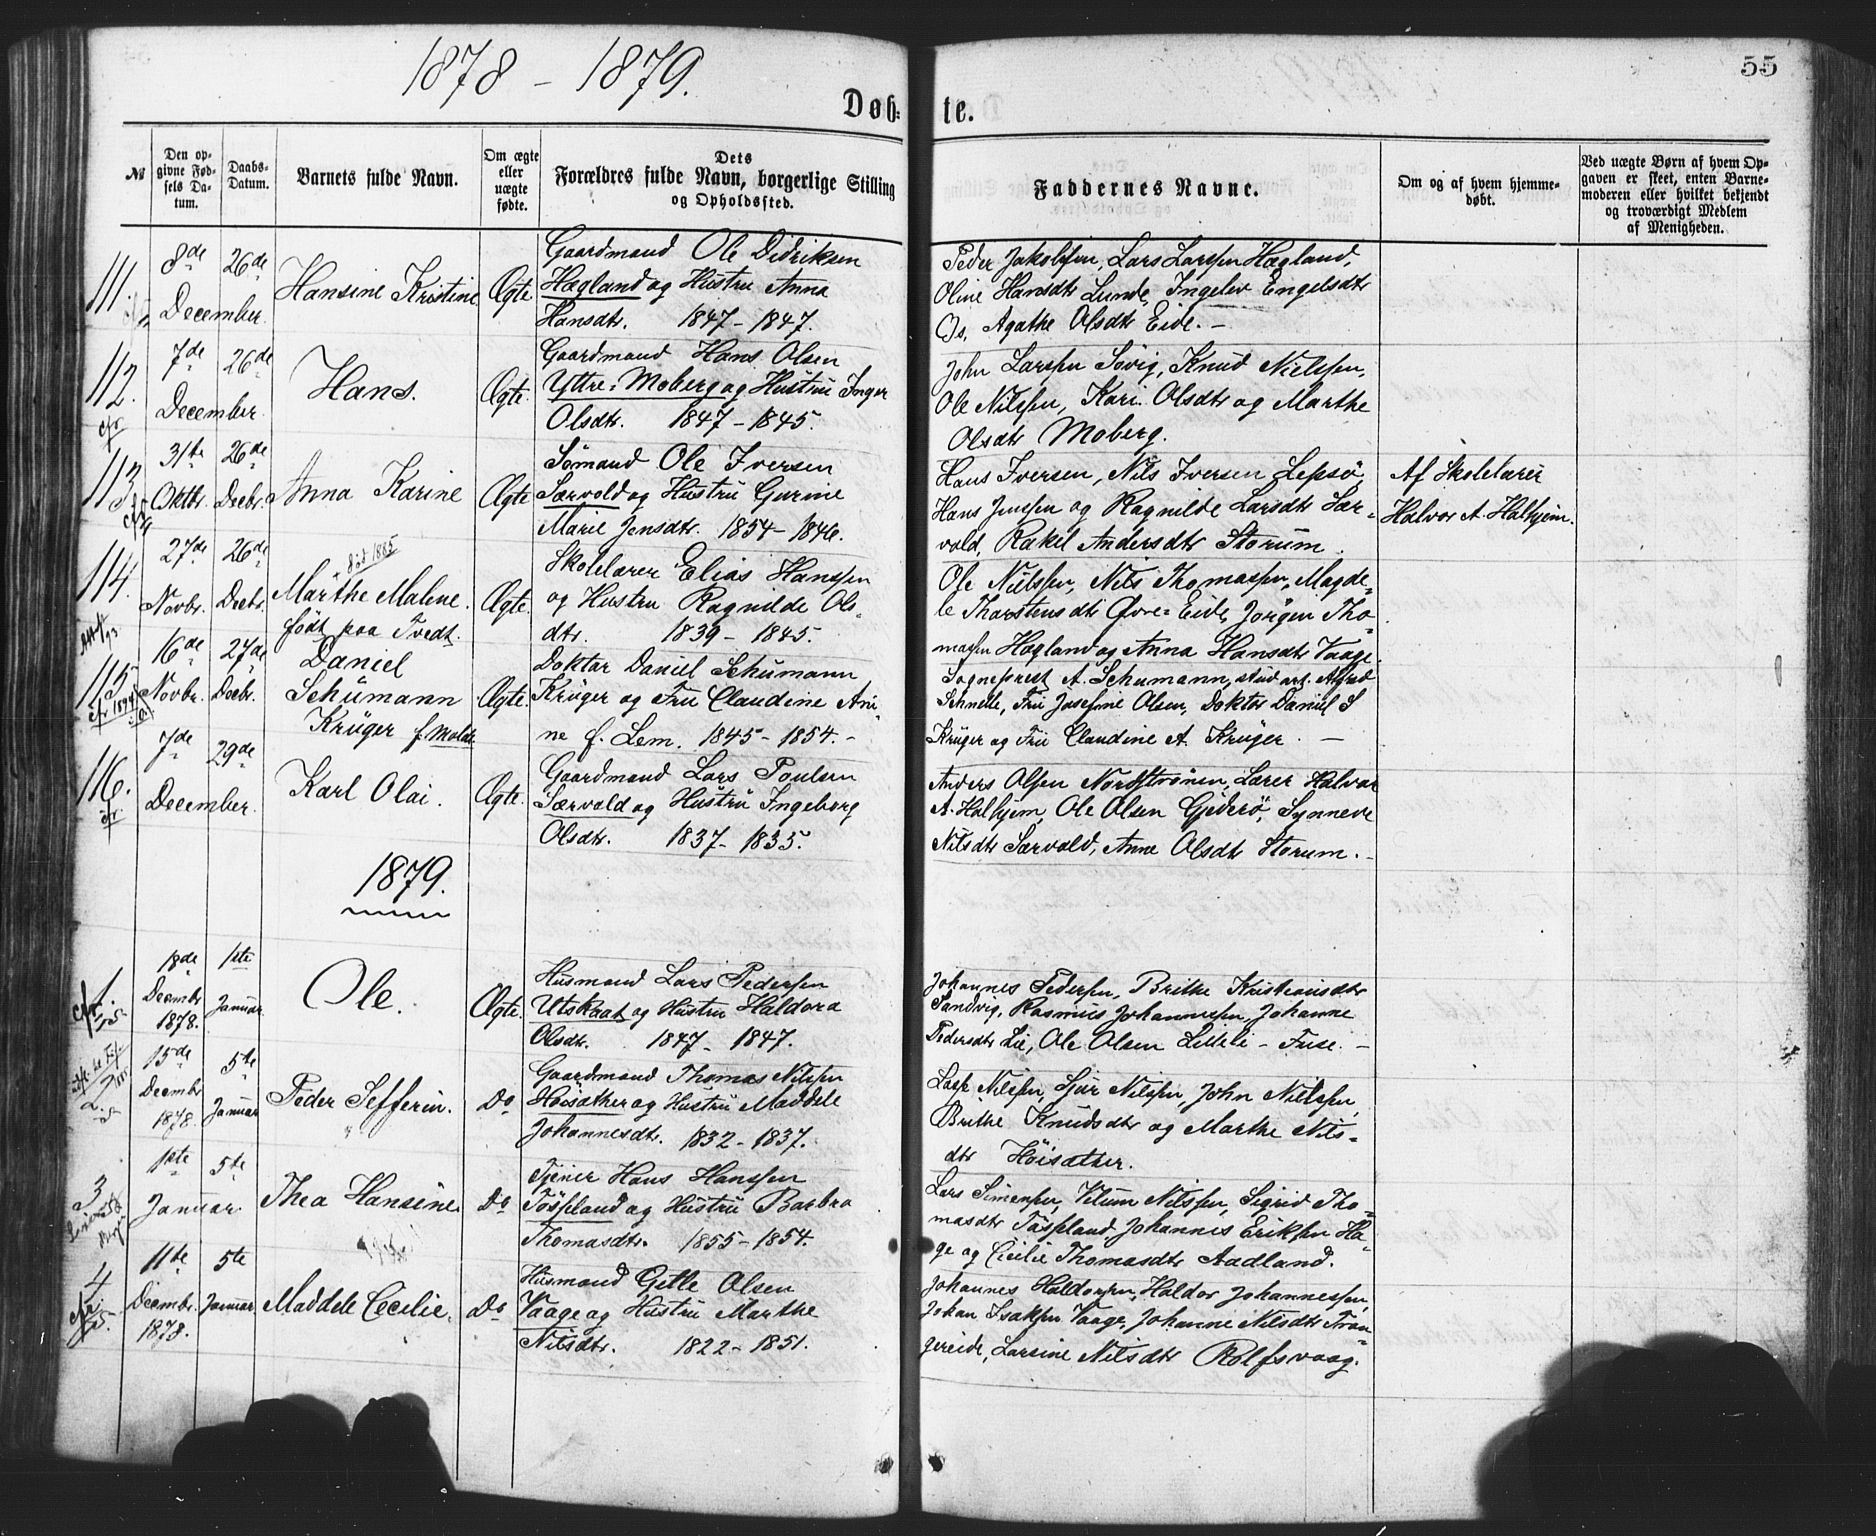 1878 - 1879.
55
Døb-
te.
№
Den op-
givne Fød-
sels Da-
tum.
Daabs-
Datum.
Barnets fulde Navn.
Om ægte
eller
uægte
fødte.
Dets
Forældres fulde Navn, borgerlige Stilling
og Opholdssted.
Faddernes Navne.
Om og af hvem hjemme-
døbt.
Ved uægte Børn af hvem Op-
gaven er skeet, enten Barne-
moderen eller hvilket bekjendt
og troværdigt Medlem
af Menigheden.
111.
8de
December
26de
Hansine Kristine
Ægte.
Gaardmand Ole Didriksen
Hægland og Hustru Anna
Hansdtr. 1847 - 1847.
Peder Jakobsen, Lars Larssen Hægland,
Oline Hansdtr Lunde, Ingelev Engelsdtr
Os, Agathe Olsdtr Eide. -
112.
cfr
7de
December.
26de
Hans.
Ægte.
Gaardmand Hans Olsen
Yttre-Moberg og Hustru Inger
Olsdtr. 1847 - 1845.
John Larssen Søvig, Knud Nielssen,
Ole Nilssen, Kari Olsdtr og Marthe
Olsdtr Moberg.
113
31te
Oktbr.
26de
Decbr.
Anna Karine
Ægte
Sømand Ole Iversen
Særvold og Hustru Gurine
Marie Jensdtr. 1854 - 1846.
Hans Iversen, Nils Iversen Lepsø,
Hans Jenssen og Ragnilde Larsdtr Sær-
vold, Rakel Andersdtr Storum.
Af Skolelærer
Halvor A. Halhjem.
114.
27de
Novbr.
26de
Decbr.
Død 1885
Marthe Malene.
født paa Tvedt.
Ægte.
Skolelærer Elias Hanssen
og Hustru Ragnilde Ols-
dtr. 1839 - 1845.
Ole Nielssen, Nils Thomassen, Magde-
le Thorstensdtr Øvre-Eide, Jørgen Tho-
massen Hægland og Anna Hansdtr Vaage.
115
cfr 1894
16de
Novbr.
27de
Decbr.
Daniel
Schumann
Krüger f. Molde
Ægte.
Doktor Daniel Schumann
Krüger og Fru Claudine Ani-
ne f. Lem. 1845 - 1854. -
Sogneprest A. Schumann, stud art. Astrid
Schnelle, Fru Josefine Olsen, Doktor Daniel S
Krüger og Fru Claudine A. Krüger. -
116.
cfr
7de
December.
29de
Karl Olai.
Ægte.
Gaardmand Lars Poulsen
Særvold og Hustru Ingeborg
Olsdtr. 1837 - 1835.
Anders Olsen Nordstrønen, Lærer Halvor
A. Halhjem, Ole Olsen Gjederø, Synneve
Nilsdtr Særvold, Anne Olsdtr Storum. -
1879.
1.
18de
Decembr
1878.
1ste
Januar
Ole.
Ægte.
Husmand Lars Pedersen
Utskaat og Hustru Haldora
Olsdtr. 1847 - 1847.
Johannes Pedersen, Brithe Kristiansdtr
Sandvig, Rasmus Johannessen, Johanne
Pedersdtr Lie, Ole Olsen Lilleli - Fuse. -
2.
15de
Decembr
1878.
5te
Januar
Peder Sefferin.
Do
Gaardmand Thomas Nilssen
Høisæther og Hustru Maddele
Johannesdtr. 1832 - 1837.
Lasse Nilssen, Sjur Nilssen, John Nielssen,
Brithe Knudsdtr og Marthe Nils-
dtr Høisæther.
3
1ste
Januar.
5te
Thea Hansine.
Do
Tjener Hans Hanssen
Tøssland og Hustru Barbra
Thomasdtr. 1855 - 1854.
Lars Simensen, Vilum Nilssen, Sigrid Tho-
masdtr Tøssland, Johannes Eriksen Ha-
ge og Cecilie Thomasdtr Aadland.
4
11te
Decembr.
1878.
5te
Januar.
Maddele Cecilie.
Do
Husmand Gitle Olsen
Vaage og Hustru Marthe
Nilsdtr. 1822 - 1851.
Johannes Haldorsen, Haldor Johannessen,
Johan Isaksen Vaage, Johanne Nilsdtr Tran-
gereide, Larsine Nilsdtr Rolfsvaag.